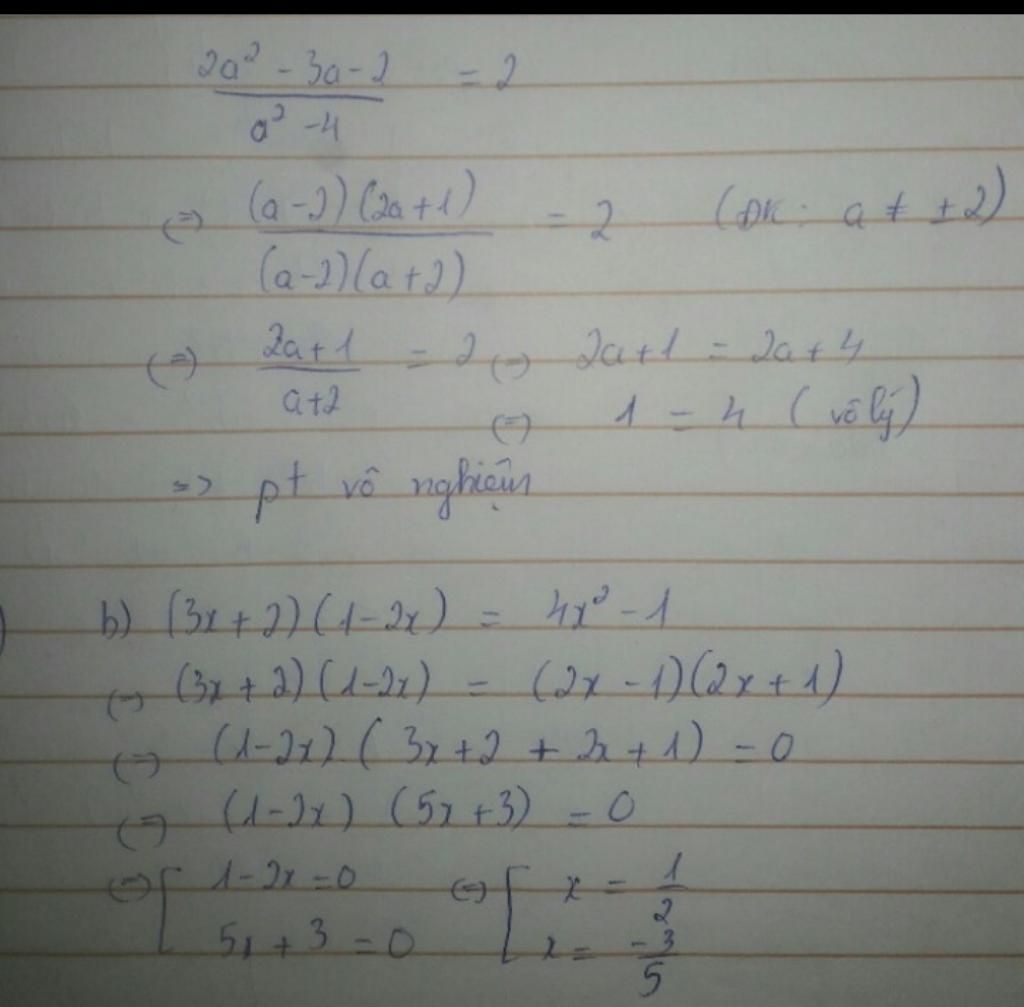 (2a² - 3a - 2)/(a² - 4) = 2
⇔ ((a-2)(2a+1))/((a-2)(a+2)) = 2 (ĐK: a ≠ ±2)
⇔ (2a+1)/(a+2) = 2 ⇔ 2a+1 = 2a+4
⇔ 1 = 4 (vô lý)
=> pt vô nghiệm
b) (3x+2)(1-2x) = 4x² - 1
⇔ (3x+2)(1-2x) = (2x-1)(2x+1)
⇔ (1-2x)(3x+2+2x+1) = 0
⇔ (1-2x)(5x+3) = 0
⇔ [ 1-2x=0 ⇔ [ x = 1/2
5x+3=0 x = -3/5